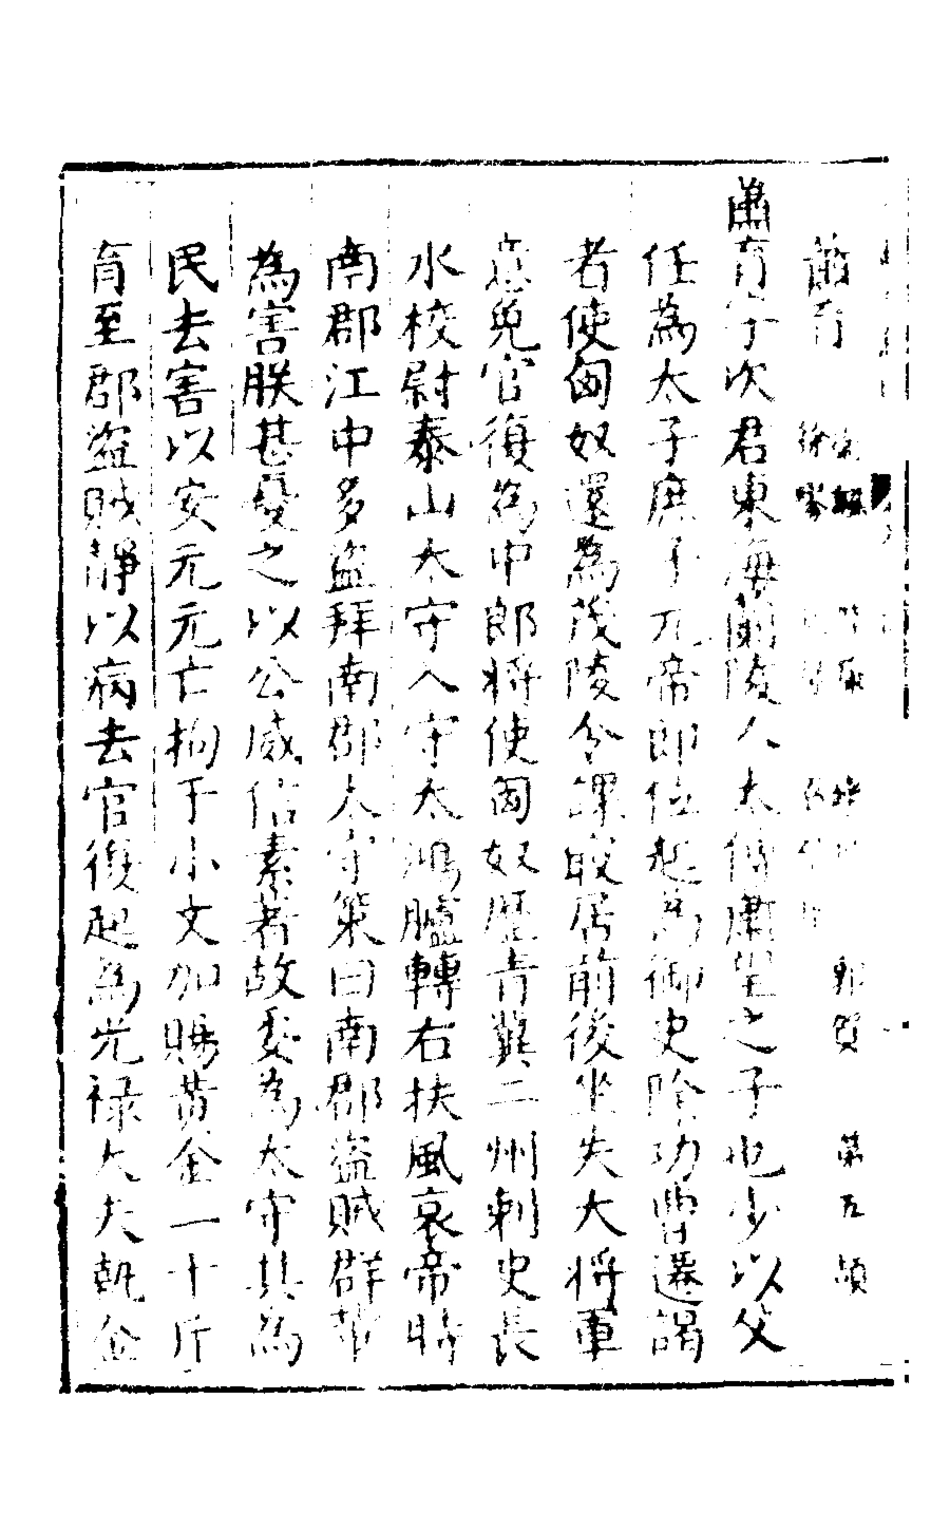 蕭育
郭賀 第五頡
蕭育字次君東海蘭陵人太傅蕭望之子也少以父
任為太子庶子元帝即位起為御史除功曹遷謁
者使匈奴還為茂陵令課最居前後坐失大將軍
意免官復為中郎將使匈奴歷青冀二州刺史長
水校尉泰山太守入守太鴻臚轉右扶風哀帝時
南郡江中多盜拜南郡太守策曰南郡盜賊群
為害朕甚憂之以公威信素著故委為太守其為
民去害以安元元亡拘于小文加賜黃金一十斤
育至郡盜賊靜以病去官復起為光祿大夫執金